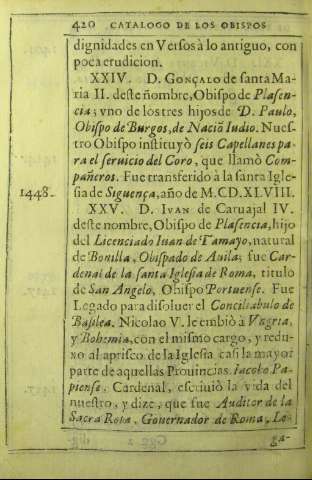 420 CATALOGO DE LOS OBISPOS
dignidades en Versos à lo antiguo, con
poca erudicion.
XXIV. D. GONÇALO de santa Ma-
ria II. deste ñombre, Obispo de Plasen-
cia; vno de los tres hijos de D. Paulo,
Obispo de Burgos, de Naciõ Iudio. Nues-
tro Obispo instituyò seis Capellanes pa-
ra el seruicio del Coro, que llamò Com-
pañeros. Fue transferido à la santa Igle-
1448. sia de Siguença, año de M.CD.XLVIII.
XXV. D. IVAN de Caruajal IV.
deste nombre, Obispo de Plasencia, hijo
del Licenciado Iuan de Tamayo, natural
de Bonilla, Obispado de Auila; fue Car-
denal de la santa Iglesia de Roma, titulo
de San Angelo, Obispo Portuense. Fue
Legado para disoluer el Conciliabulo de
Basilea. Nicolao V. le embiò à Vngria,
y Bohemia, con el mismo cargo, y redu-
xo al aprisco de la Iglesia casi la mayor
parte de aquellas Prouincias. Iacobo Pa-
piense, Cardenal, escriuiò la vida del
nuestro, y dize, que fue Auditor de la
Sacra Rota, Gouernador de Roma, Le-
ga-